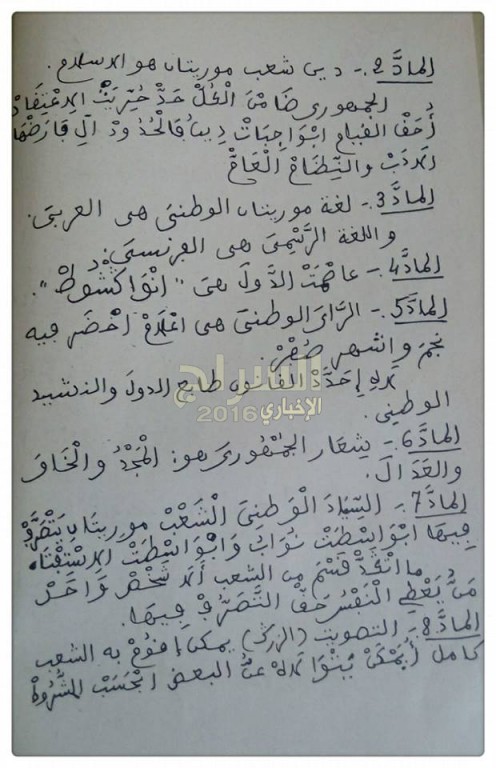 المادَّ 2.- دين شعب موريتان هو الاسلام.
الجمهوري ضَامْنَ الْكُلْ حَدَّ حُرِّيَّتْ الِاعْتِقَادْ
أُحَقْ القيام ابْوَاجِبَاتْ دِينُ فَالْحُدُودْ الِّ فَارَضْهَا
الادَبْ والنِّظَامْ الْعَامْ
المادَّ 3.- لغة موريتان الوطني هي العربي.
واللغة الرَّسْمِيَ هي الفرنسي.
المادَّ 4.- عاصْمَتْ الدَّولَ هيَ "انْوَاكشُوطْ".
المادَّ 5.- الرَّايَ الوطنيَ هي اعْلَامْ اخْضَر فيه
نجمَ واشهر صُفْرْ.
لاهِ إحَدَّدْ القانون طابع الدولَ والنشيد
الوطني.
المادَّ 6.- شِعَار الجُمْهُوريَ هو: الْمَجْدُ والْخَاوَ
والعَدَالَ.
المادَّ 7.- السِّيَادَ الْوَطنيَ الْشَعْبْ موريتان يَتْصَرَّفْ
فِيهَا ابْوَاسِطَتْ نُوَابُ وَابْوَاسِطَتْ الِاسْتِفْتَاء
ما اتْكَدْ قَسْمَ من الشعب أُلَا شَخْصْ وَاحَدْ
مَنُّ يَعْطِي الْنَفْسُ حَقْ التَّصَرُّفْ فِيهَا.
المادَّ 8.- التصويت (الزرگ) يمكن إقومْ به الشعب
كامل أُيَمْكَنْ عَنُّ البعض ابْحَسَبْ الشُّرُوطْ
السراج
الإخباري 2016